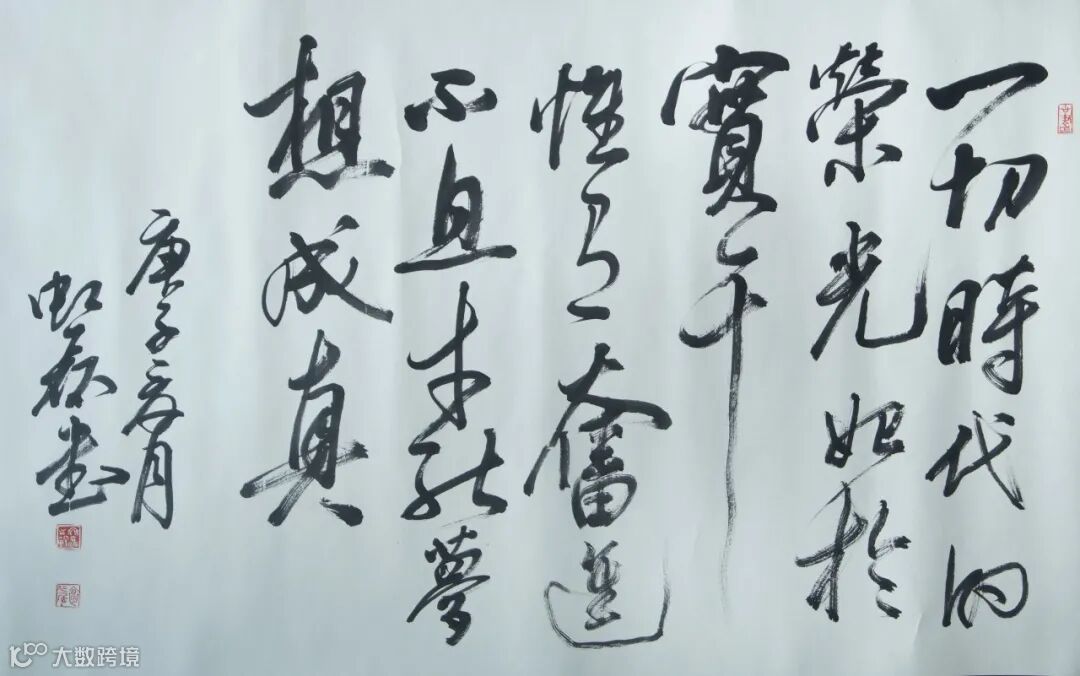 一切時代的
榮光始於
實干
惟有奮進
不息才能夢
想成真
庚子夏月
虹書
大数跨境